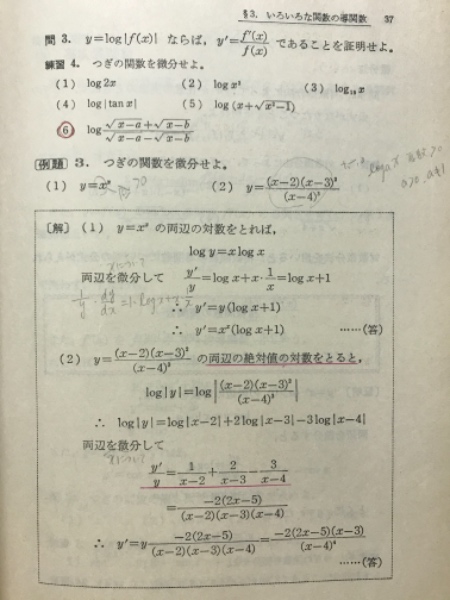 §3. いろいろな関数の導関数 37
問 3. y=log|f(x)| ならば, y'=f'(x)/f(x) であることを証明せよ。
練習 4. つぎの関数を微分せよ。
(1) log2x (2) log x² (3) log₁₀x
(4) log|tan x| (5) log(x+√(x²−1))
(6) log (√(x−a)+√(x−b))/(√(x−a)−√(x−b))
例題 3. つぎの関数を微分せよ。
(1) y=xˣ >0 (2) y=(x−2)(x−3)²/(x−4)³
logax 真数>0
a>0, a≠1
〔解〕 (1) y=xˣ の両辺の対数をとれば,
log y=x log x
xについて
両辺を微分して y'/y=log x+x·1/x=log x+1
1/y·dy/dx=1·log x+x·1/x
∴ y'=y(log x+1)
∴ y'=xˣ(log x+1) ……(答)
(2) y=(x−2)(x−3)²/(x−4)³ の両辺の絶対値の対数をとると,
log|y|=log|(x−2)(x−3)²/(x−4)³|
∴ log|y|=log|x−2|+2log|x−3|−3log|x−4|
両辺を微分して
xについて
y'/y=1/(x−2)+2/(x−3)−3/(x−4)
=−2(2x−5)/((x−2)(x−3)(x−4))
∴ y'=y −2(2x−5)/((x−2)(x−3)(x−4))=−2(2x−5)(x−3)/(x−4)⁴
……(答)